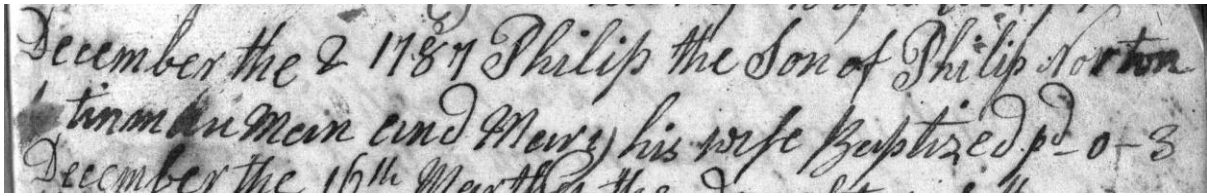 December the 2 1787 Philip the Son of Philip Norton
man and Mary his wife Baptized pd - 0 - 3
December the 16th Martha the